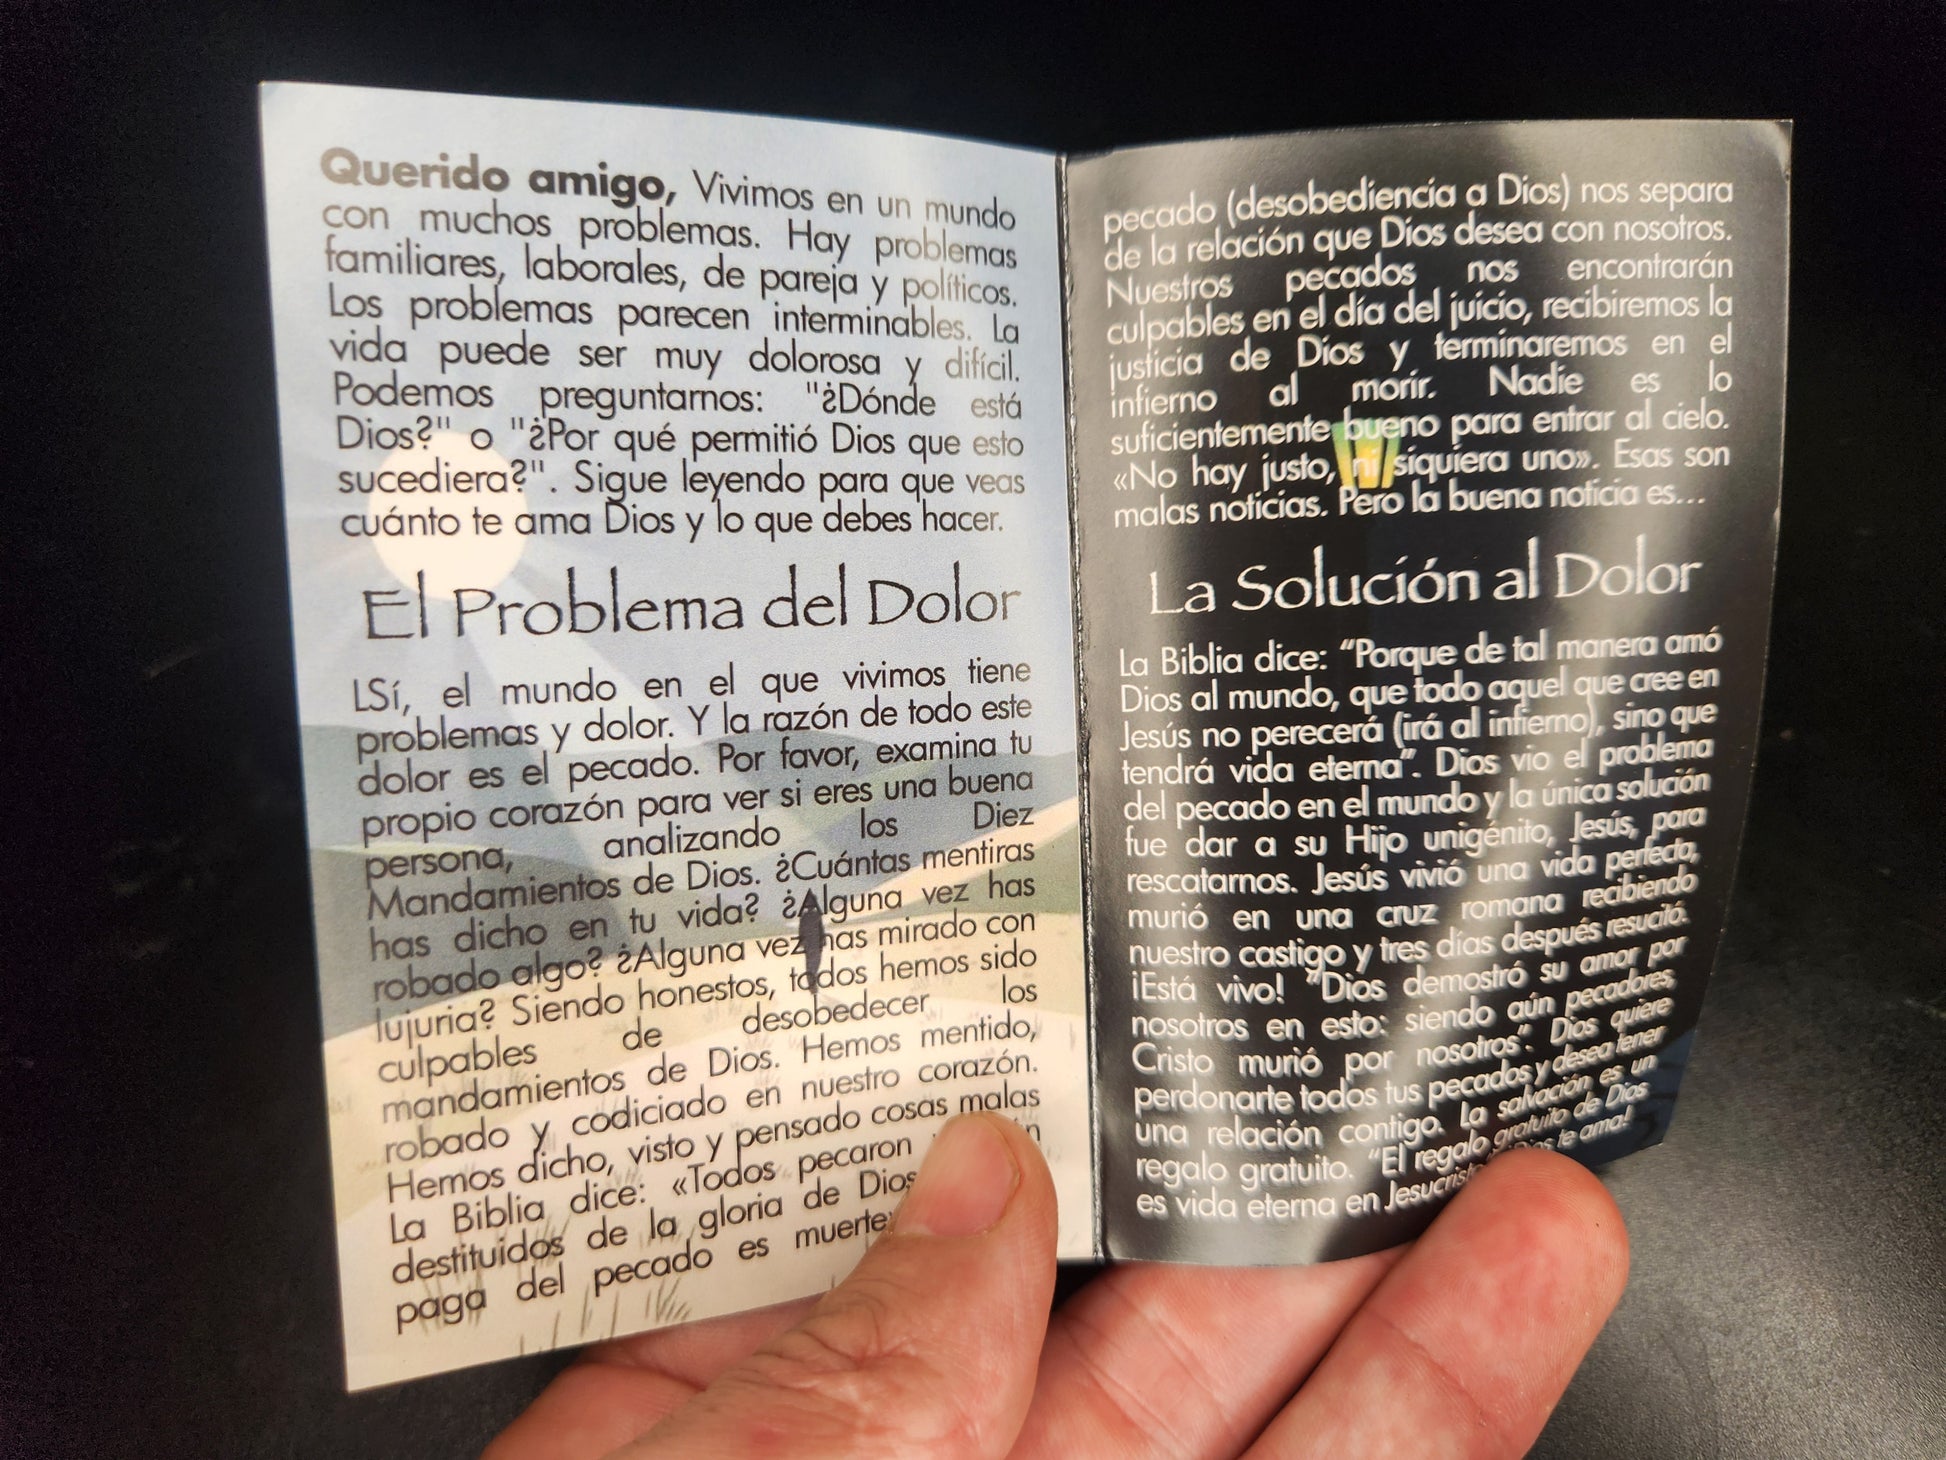 Querido amigo, Vivimos en un mundo
con muchos problemas. Hay problemas
familiares, laborales, de pareja y políticos.
Los problemas parecen interminables. La
vida puede ser muy dolorosa y difícil.
Podemos preguntarnos: "¿Dónde está
Dios?" o "¿Por qué permitió Dios que esto
sucediera?". Sigue leyendo para que veas
cuánto te ama Dios y lo que debes hacer.
El Problema del Dolor
LSí, el mundo en el que vivimos tiene
problemas y dolor. Y la razón de todo este
dolor es el pecado. Por favor, examina tu
propio corazón para ver si eres una buena
persona, analizando los Diez
Mandamientos de Dios. ¿Cuántas mentiras
has dicho en tu vida? ¿Alguna vez has
robado algo? ¿Alguna vez has mirado con
lujuria? Siendo honestos, todos hemos sido
culpables de desobedecer los
mandamientos de Dios. Hemos mentido,
robado y codiciado en nuestro corazón.
Hemos dicho, visto y pensado cosas malas
La Biblia dice: «Todos pecaron
destituidos de la gloria de Dios
paga del pecado es muerte
pecado (desobediencia a Dios) nos separa
de la relación que Dios desea con nosotros.
Nuestros pecados nos encontrarán
culpables en el día del juicio, recibiremos la
justicia de Dios y terminaremos en el
infierno al morir. Nadie es lo
suficientemente bueno para entrar al cielo.
«No hay justo, ni siquiera uno». Esas son
malas noticias. Pero la buena noticia es...
La Solución al Dolor
La Biblia dice: “Porque de tal manera amó
Dios al mundo, que todo aquel que cree en
Jesús no perecerá (irá al infierno), sino que
tendrá vida eterna”. Dios vio el problema
del pecado en el mundo y la única solución
fue dar a su Hijo unigénito, Jesús, para
rescatarnos. Jesús vivió una vida perfecta,
murió en una cruz romana recibiendo
nuestro castigo y tres días después resucitó.
¡Está vivo! “Dios demostró su amor por
nosotros en esto: siendo aún pecadores,
Cristo murió por nosotros”. Dios quiere
perdonarte todos tus pecados y desea tener
una relación contigo. La salvación es un
regalo gratuito. “El regalo gratuito de Dios
es vida eterna en Jesucristo te ama!